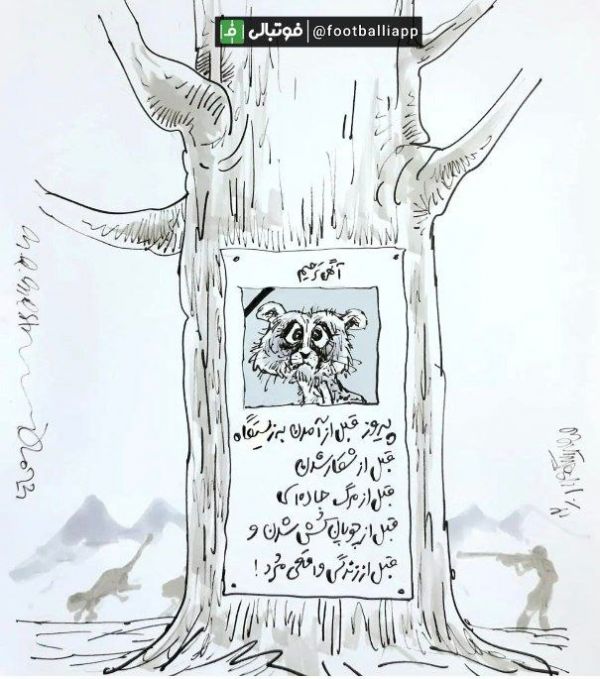 فوتبالی | @footballiapp
آگهی ترحیم
پیروز قبل از آمدن به زیستگاه
قبل از شکار شدن
قبل از مرگ جاده‌ای
قبل از چوپان کُشی شدن و
قبل از زندگی واقعی مُرد!